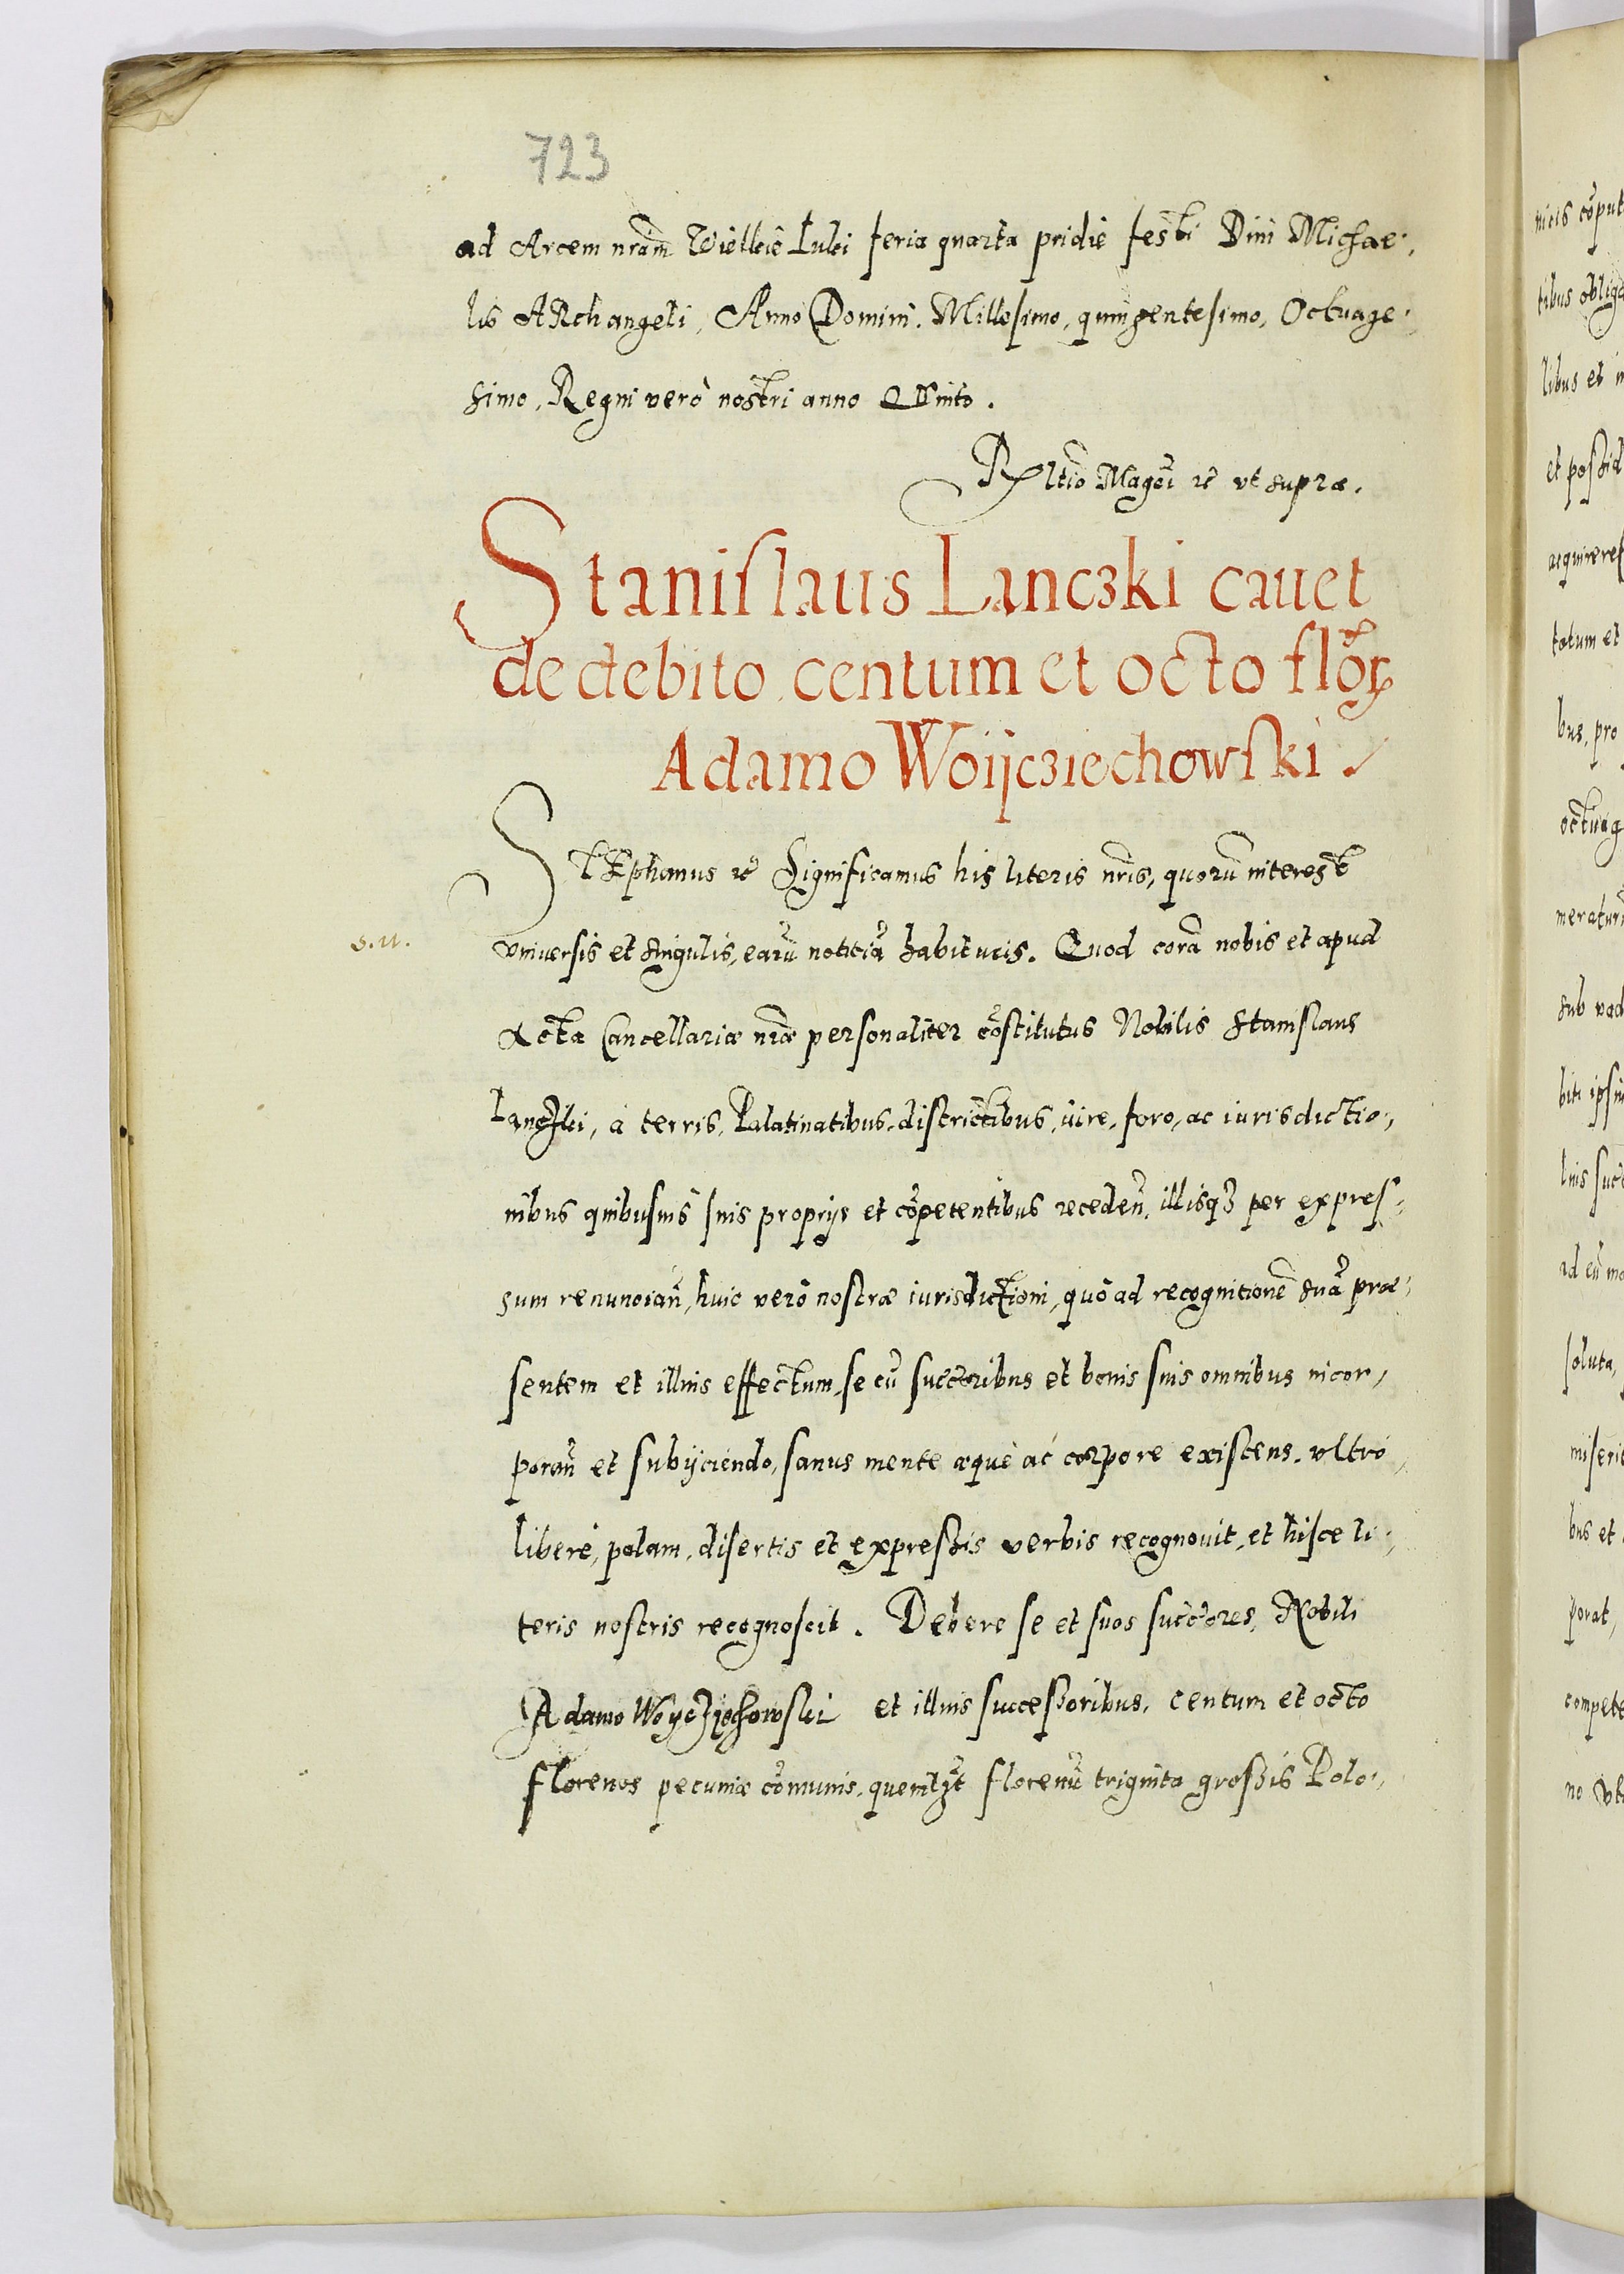 723
ad Arcem nram Wielkie Luki feria quarta pridie festi Diui Michae,
lis ARchangeli, Anno Domini. Millesimo, quingentesimo, Octuage,
simo, Regni verò nostri anno QVinto.
Rltio Magci &c vt supra.
Stanislaus Lanczki cauet
de debito centum et octo florꝝ
Adamo Woijcziechowski
STEphanus &c Significamus his literis nris, quorũ interest
s. u.
vniuersis et singulis, earũ noticiã habituris. Quod corã nobis et apud
Acta Cancellariæ nræ personaliter cõstitutus Nobilis Stanislaus
Lanczki, à terris, Palatinatibus, districtibus, iure, foro, ac iurisdictio,
nibus quibusuis suis proprijs et cõpetentibus recedeñ, illisq3 per expres,
sum renuncian̄, huic verò nostræ iurisdictioni, quò ad recognitionẽ suã præ,
sentem et illius effectum, se cũ succoribus et bonis suis omnibus incor,
poran̄ et subijciendo, sanus mente æquè ac corpore existens, vltrò,
liberè, palam, disertis et expressis verbis recognouit, et hisce li,
teris nostris recognoscit. Debere se et suos succores, Nobili
Adamo Woyczyechowski et illius successoribus, centum et octo
florenos pecuniæ cõmunis, quemlzt florenũ triginta grossis Polo,